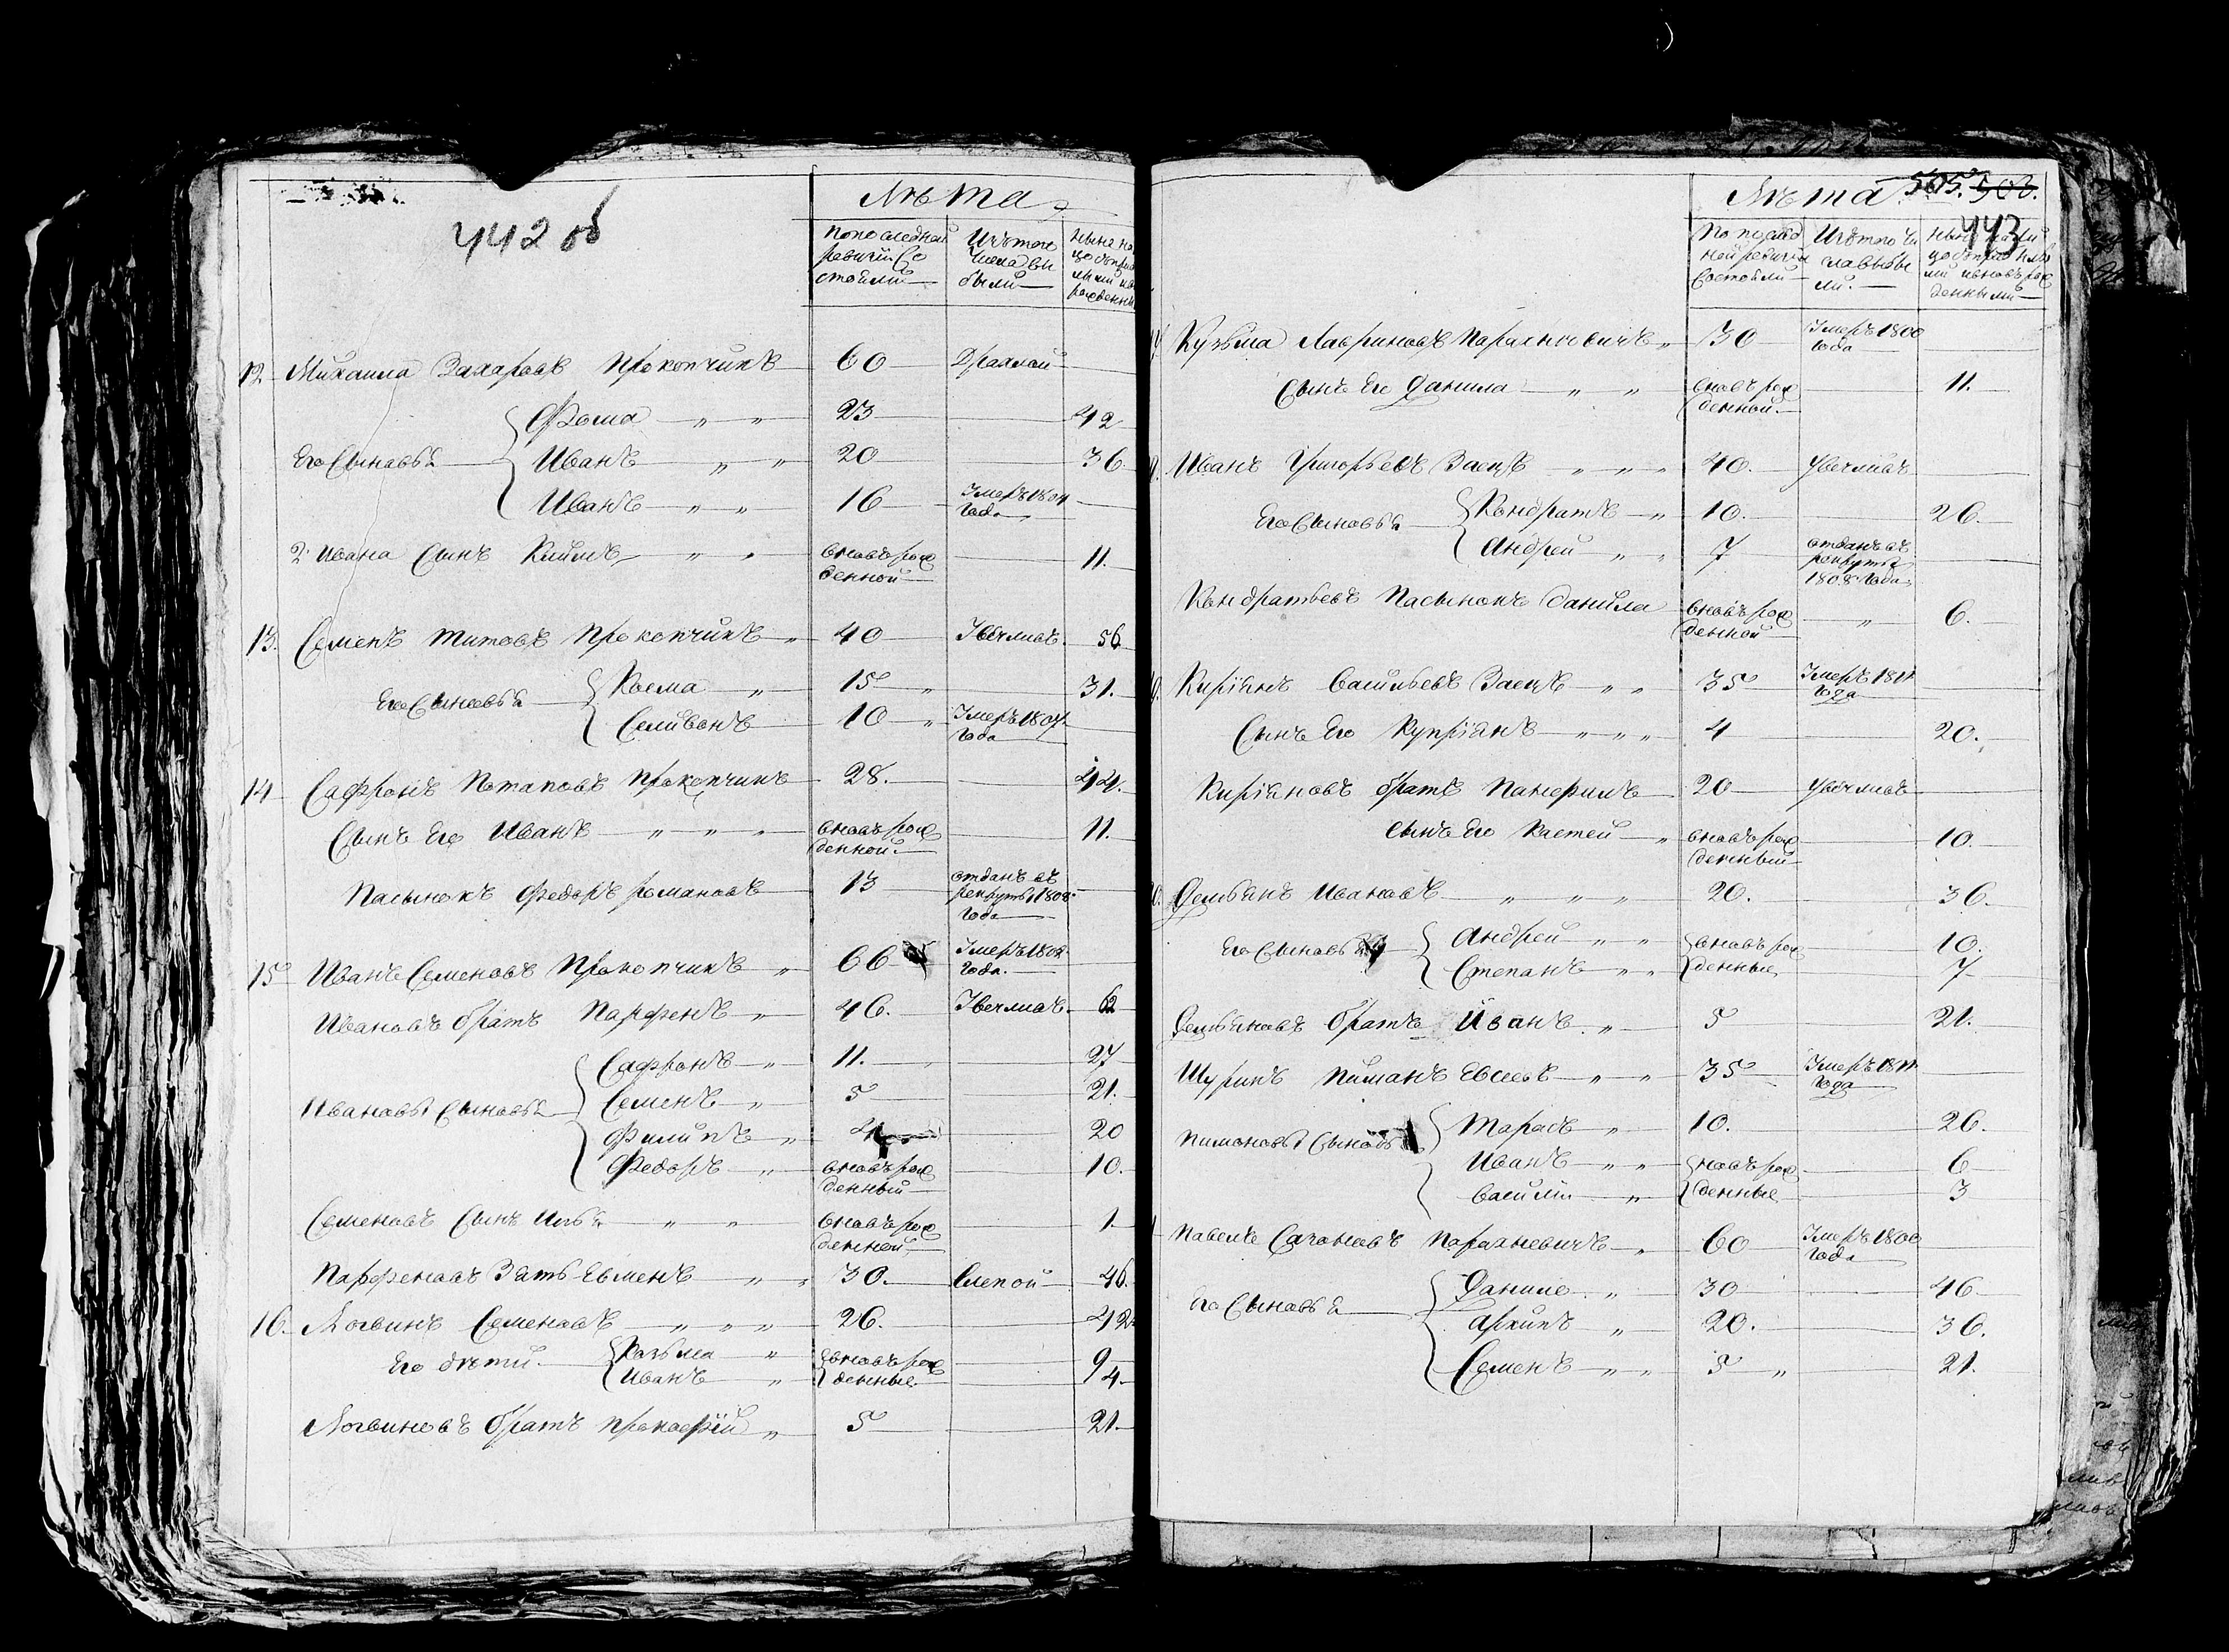 442 об
Лѣта
По последней ревизіи состояли
Изъ того числа выбыли
12 Михаила Захаровъ Прокопчикъ 60 Дряхлой
Фома „ „ 23 42
Его Сыновья Иванъ „ „ 20 36
Иванъ „ „ 16 Умеръ 1804 Года
2 Ивана Сынъ Климъ „ „ вновь рожденной 11.
13. Семенъ Титовъ Прокопчикъ „ 40 Увечливъ. 56
Его Сыновья Косма „ 15 „ 31.
Селивонъ 10 „ Умеръ 1807 Года
14 Сафронъ Потаповъ Прокопчикъ 28. 44.
Сынъ Его Иванъ „ „ „ вновь рожденной. 11.
Пасынокъ Федоръ Романовъ 13 отданъ въ рекруты 1808 Года
15 Иванъ Семеновъ Прокопчикъ „ 66 Умеръ 1802 Года.
Ивановъ братъ Парфенъ „ 46. Увечливъ. 62
Сафронъ „ 11. 27
Ивановы Сыновья Семенъ „ 5 21.
Филипъ „ 4 20
Федоръ „ вновь рожденный 10.
Семеновъ Сынъ Илья „ „ вновь рожденной 1.
Парфеновъ Зять Евменъ „ „ 30. Слепой 46.
16. Логвинъ Семеновъ „ „ „ 26. 42
Его дѣти Козьма „ вновь рожденные 9
Иванъ „ 4
Логвиновъ братъ Прокофій „ 5 21.
505. 503.
443
Лѣта
По последней ревизіи состояли
Изъ того числа выбыли.
Кузьма Лавриновъ Парахневичъ „ 30 Умеръ 1800 Года
Сынъ Его Данила „ „ вновь рожденной. 11.
Иванъ Григорьевъ Заецъ „ „ „ 40. Увечливъ
Его Сыновья Кондратъ „ 10. 26.
Андрей „ „ 7 отданъ въ рекруты 1808 Года
Кондратьевъ Пасынокъ Данила вновь рожденной „ 6.
Киріянъ Васильевъ Заецъ „ „ 35 Умеръ 1811 Года
Сынъ Его Купріянъ „ „ „ 4 20.
Киріяновъ братъ Панфилъ 20 Увечливъ
Сынъ Его Кастей „ вновь рожденный 10.
Демьянъ Ивановъ „ „ „ 20. 36.
Его Сыновья Андрей „ „ вновь рожденные 10.
Степанъ „ „ 7
Демьяновъ братъ Иванъ. „ 5 21.
Шуринъ Пиманъ Евсеевъ „ „ 35 Умеръ 1811 Года
Тарасъ „ 10. 26.
Пимоновы Сыновья Иванъ „ „ вновь рожденные 6
Василій „ 3
Павелъ Парахневичъ „ 60 Умеръ 1800 Года
Данило „ 30 46.
Его Сыновья Архипъ „ 20. 36.
Семенъ „ „ 5 „ 21.